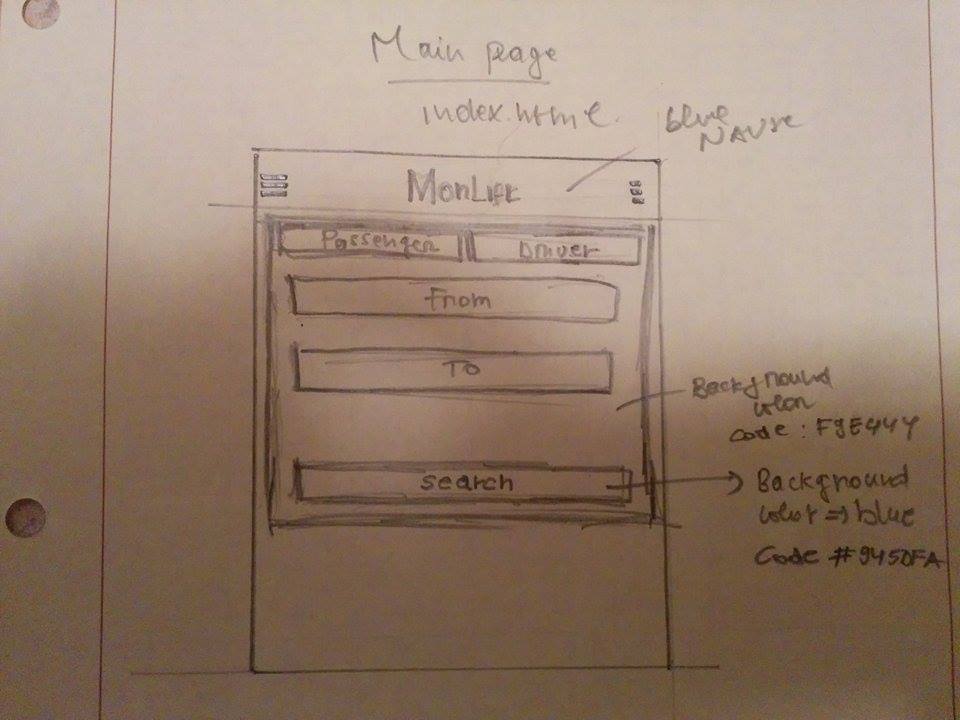 Main page
index.html.
blue
MonLift
Passenger
Driver
From
To
Background
color
code : F9E444
search
Background
color => blue
Code #9450FA